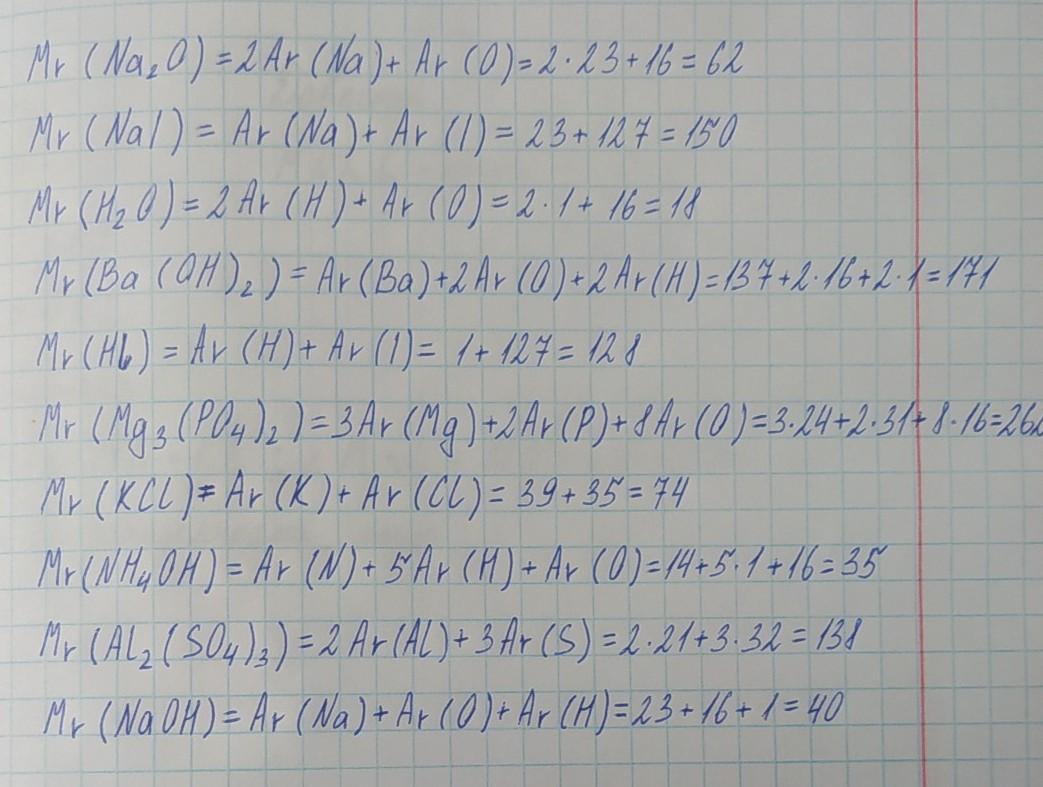 Mr (Na₂O) = 2Ar (Na) + Ar (O) = 2·23+16 = 62
Mr (NaI) = Ar (Na) + Ar (I) = 23 + 127 = 150
Mr (H₂O) = 2 Ar (H) + Ar (O) = 2·1 + 16 = 18
Mr (Ba (OH)₂) = Ar (Ba) + 2Ar (O) + 2Ar (H) = 137+2·16+2·1 = 171
Mr (HI) = Ar (H) + Ar (I) = 1 + 127 = 128
Mr (Mg₃(PO₄)₂) = 3Ar (Mg) + 2Ar (P) + 8Ar (O) = 3·24+2·31+8·16=262
Mr (KCl) = Ar (K) + Ar (Cl) = 39 + 35 = 74
Mr (NH₄OH) = Ar (N) + 5Ar (H) + Ar (O) = 14+5·1+16 = 35
Mr (Al₂(SO₄)₃) = 2Ar (Al) + 3Ar (S) = 2·21+3·32 = 138
Mr (NaOH) = Ar (Na) + Ar (O) + Ar (H) = 23 + 16 + 1 = 40